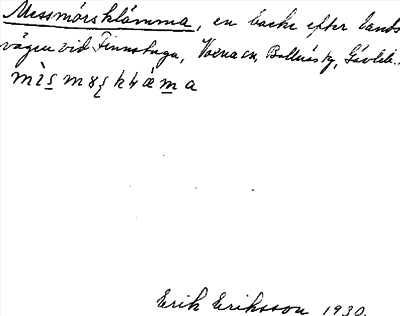 Messmórsklámma, en backe efter lands
vägen vid Finnstuga, Voxna sn, Bollnäs tg, Gävleb.
Erik Eriksson 1930.